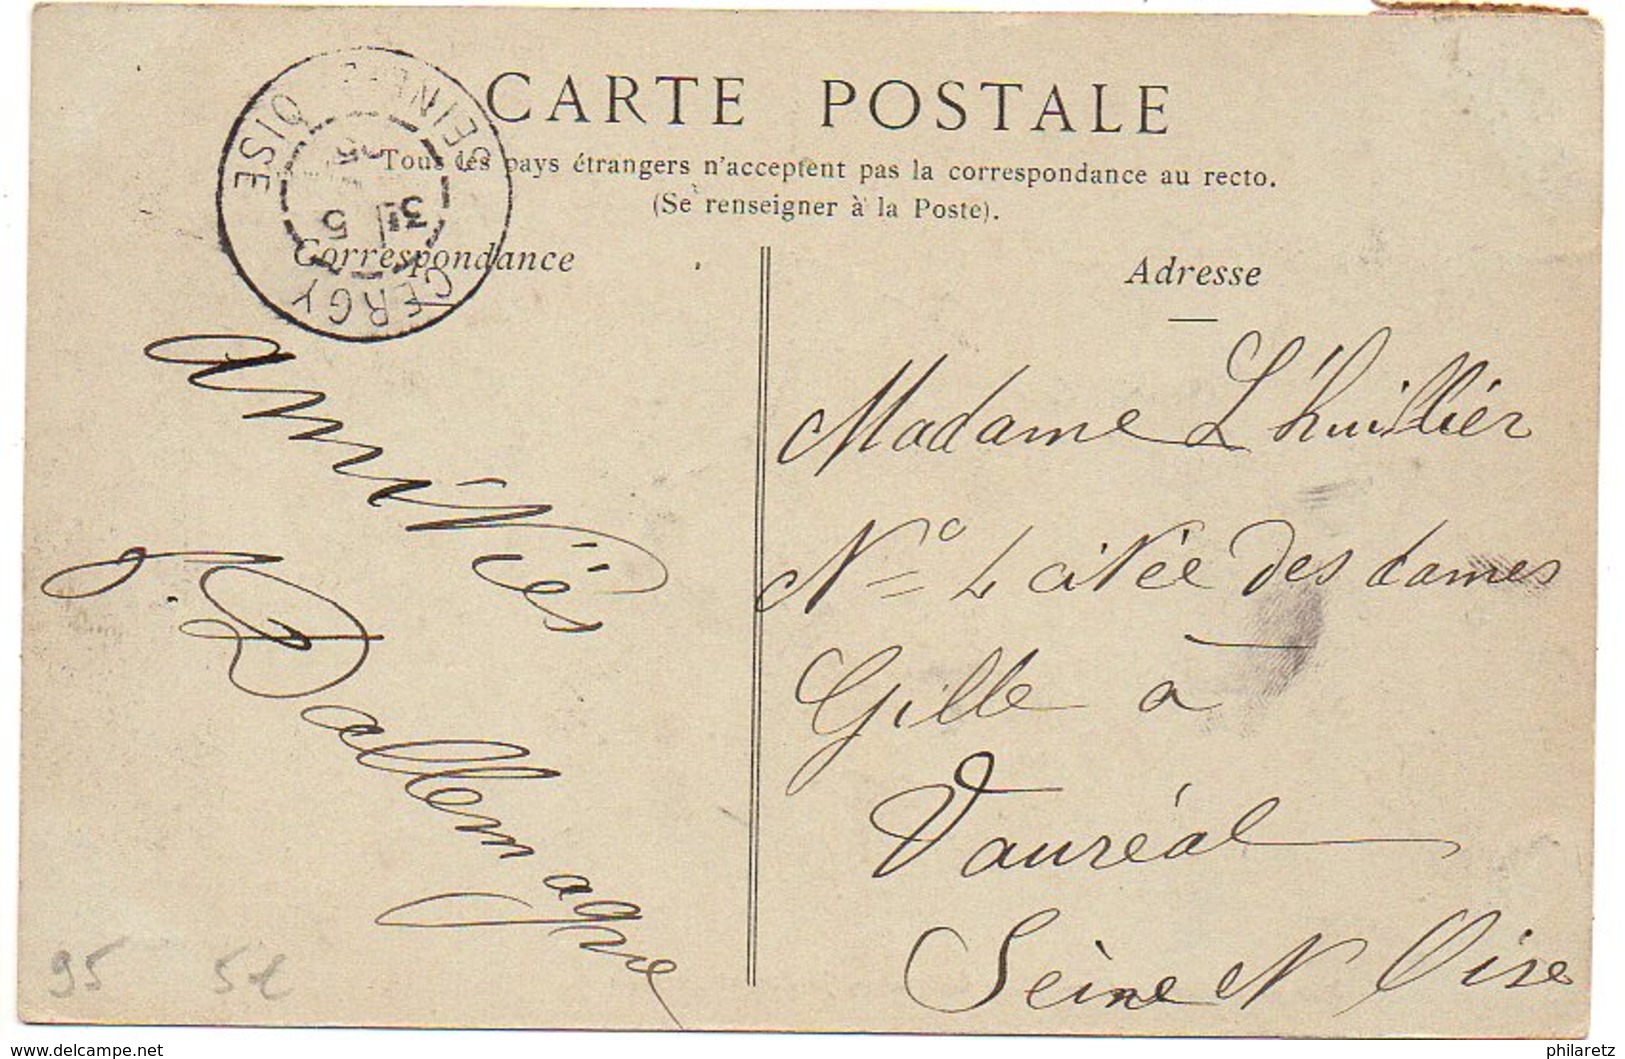 CARTE POSTALE
Tous les pays étrangers n'acceptent pas la correspondance au recto.
(Se renseigner à la Poste).
Correspondance
Adresse
CERGY
SEINE
OISE
31 5
amitiés
J. Dallemagne
Madame L'huillier
N° 4 citée des dames
Gille a
Vauréal
Seine N Oise
95 5€
www.delcampe.net
philaretz